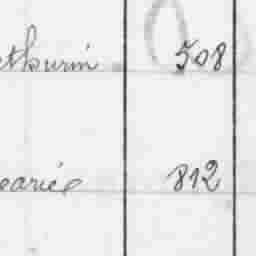 athurin 508
carié 812